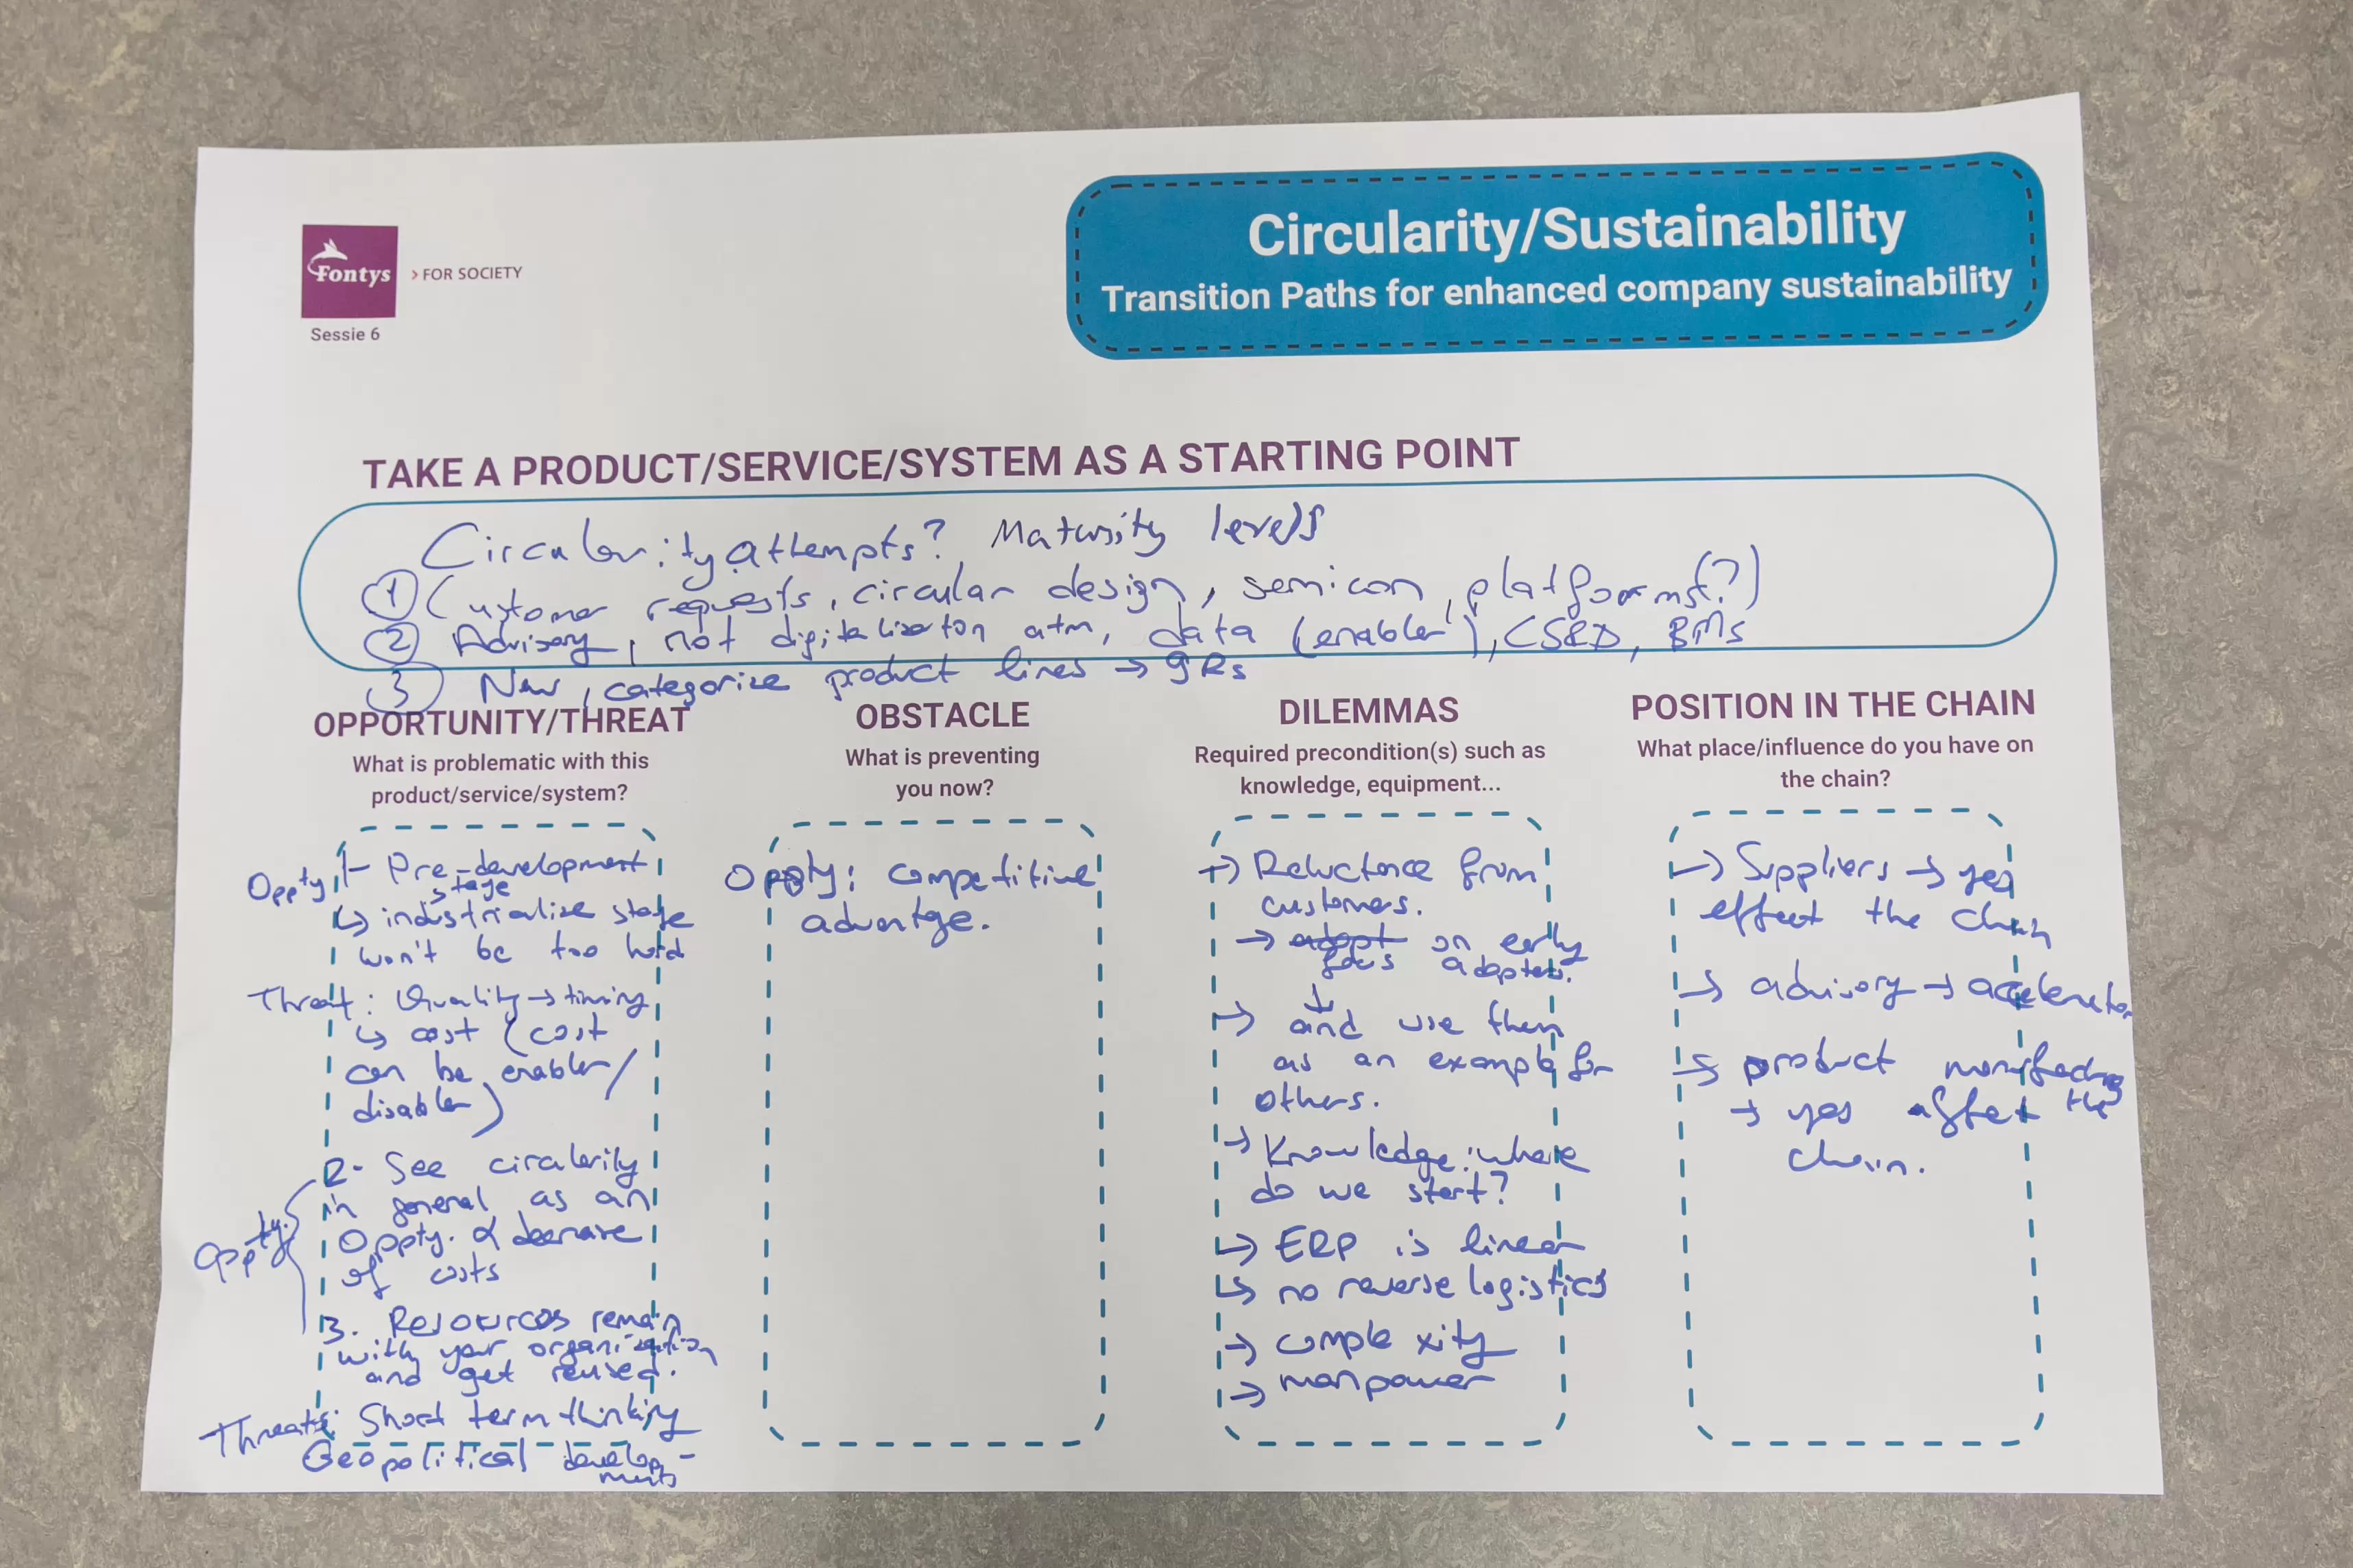 Circularity/Sustainability
Transition Paths for enhanced company sustainability
Fontys
> FOR SOCIETY
Sessie 6
TAKE A PRODUCT/SERVICE/SYSTEM AS A STARTING POINT
Circularity attempts? Maturity levels
① Customer requests, circular design, semicon, platforms(?)
② Advisory, not digitalisation atm, data (enabler), CSRD, BMs
③ New, categorize product lines → 9Rs
OPPORTUNITY/THREAT
What is problematic with this
product/service/system?
Oppty: 1- Pre-development
stage
↳ industrialize stage
won't be too hard
Threat: Quality → timing
↳ cost (cost
can be enabler/
disabler)
Oppty.
2- See circularity
in general as an
Oppty. & decrease
of costs
3. Resources remain
with your organization
and get reused.
Threats: Short term thinking
Geopolitical develop-
ments
OBSTACLE
What is preventing
you now?
Oppty: competitive
advantge.
DILEMMAS
Required precondition(s) such as
knowledge, equipment...
→ Reluctance from
customers.
→ adopt on early
focus adopters.
↓
→ and use them
as an example for
others.
→ Knowledge: where
do we start?
↳ ERP is linear
↳ no reverse logistics
→ comple xity
→ manpower
POSITION IN THE CHAIN
What place/influence do you have on
the chain?
→ Suppliers → yes
effect the chain
→ advisory → accelerator
→ product
→ yes affect the
chain.